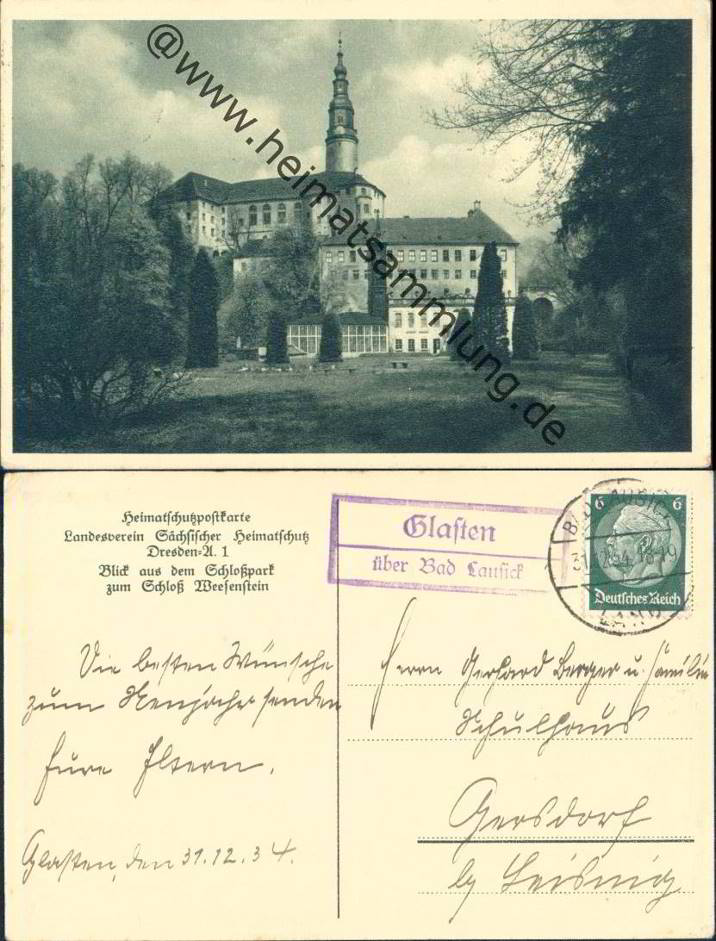 @www.heimatsammlung.de
Heimatschutzpostkarte
Landesverein Sächsischer Heimatschutz
Dresden-A. 1
Blick aus dem Schloßpark
zum Schloß Weesenstein
Glasten
über Bad Lausick
BAD LAUSICK
31.12.34.18-19
LAND
6 6
Deutsches Reich
Die besten Wünsche
zum Neujahr senden
Eure Eltern.
Glasten, den 31.12.34.
Herrn Gerhard Berger u. Familie
Schulhaus
Gersdorf
b/ Leisnig